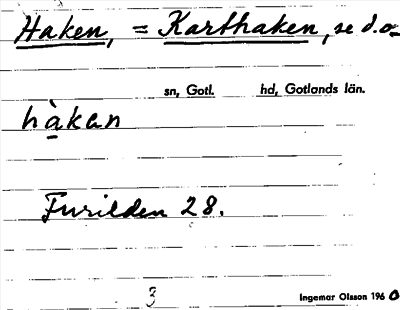 Haken, = Karthaken, se d.o.
sn, Gotl. hd, Gotlands län.
hàkan
Furilden 28.
3
Ingemar Olsson 1960